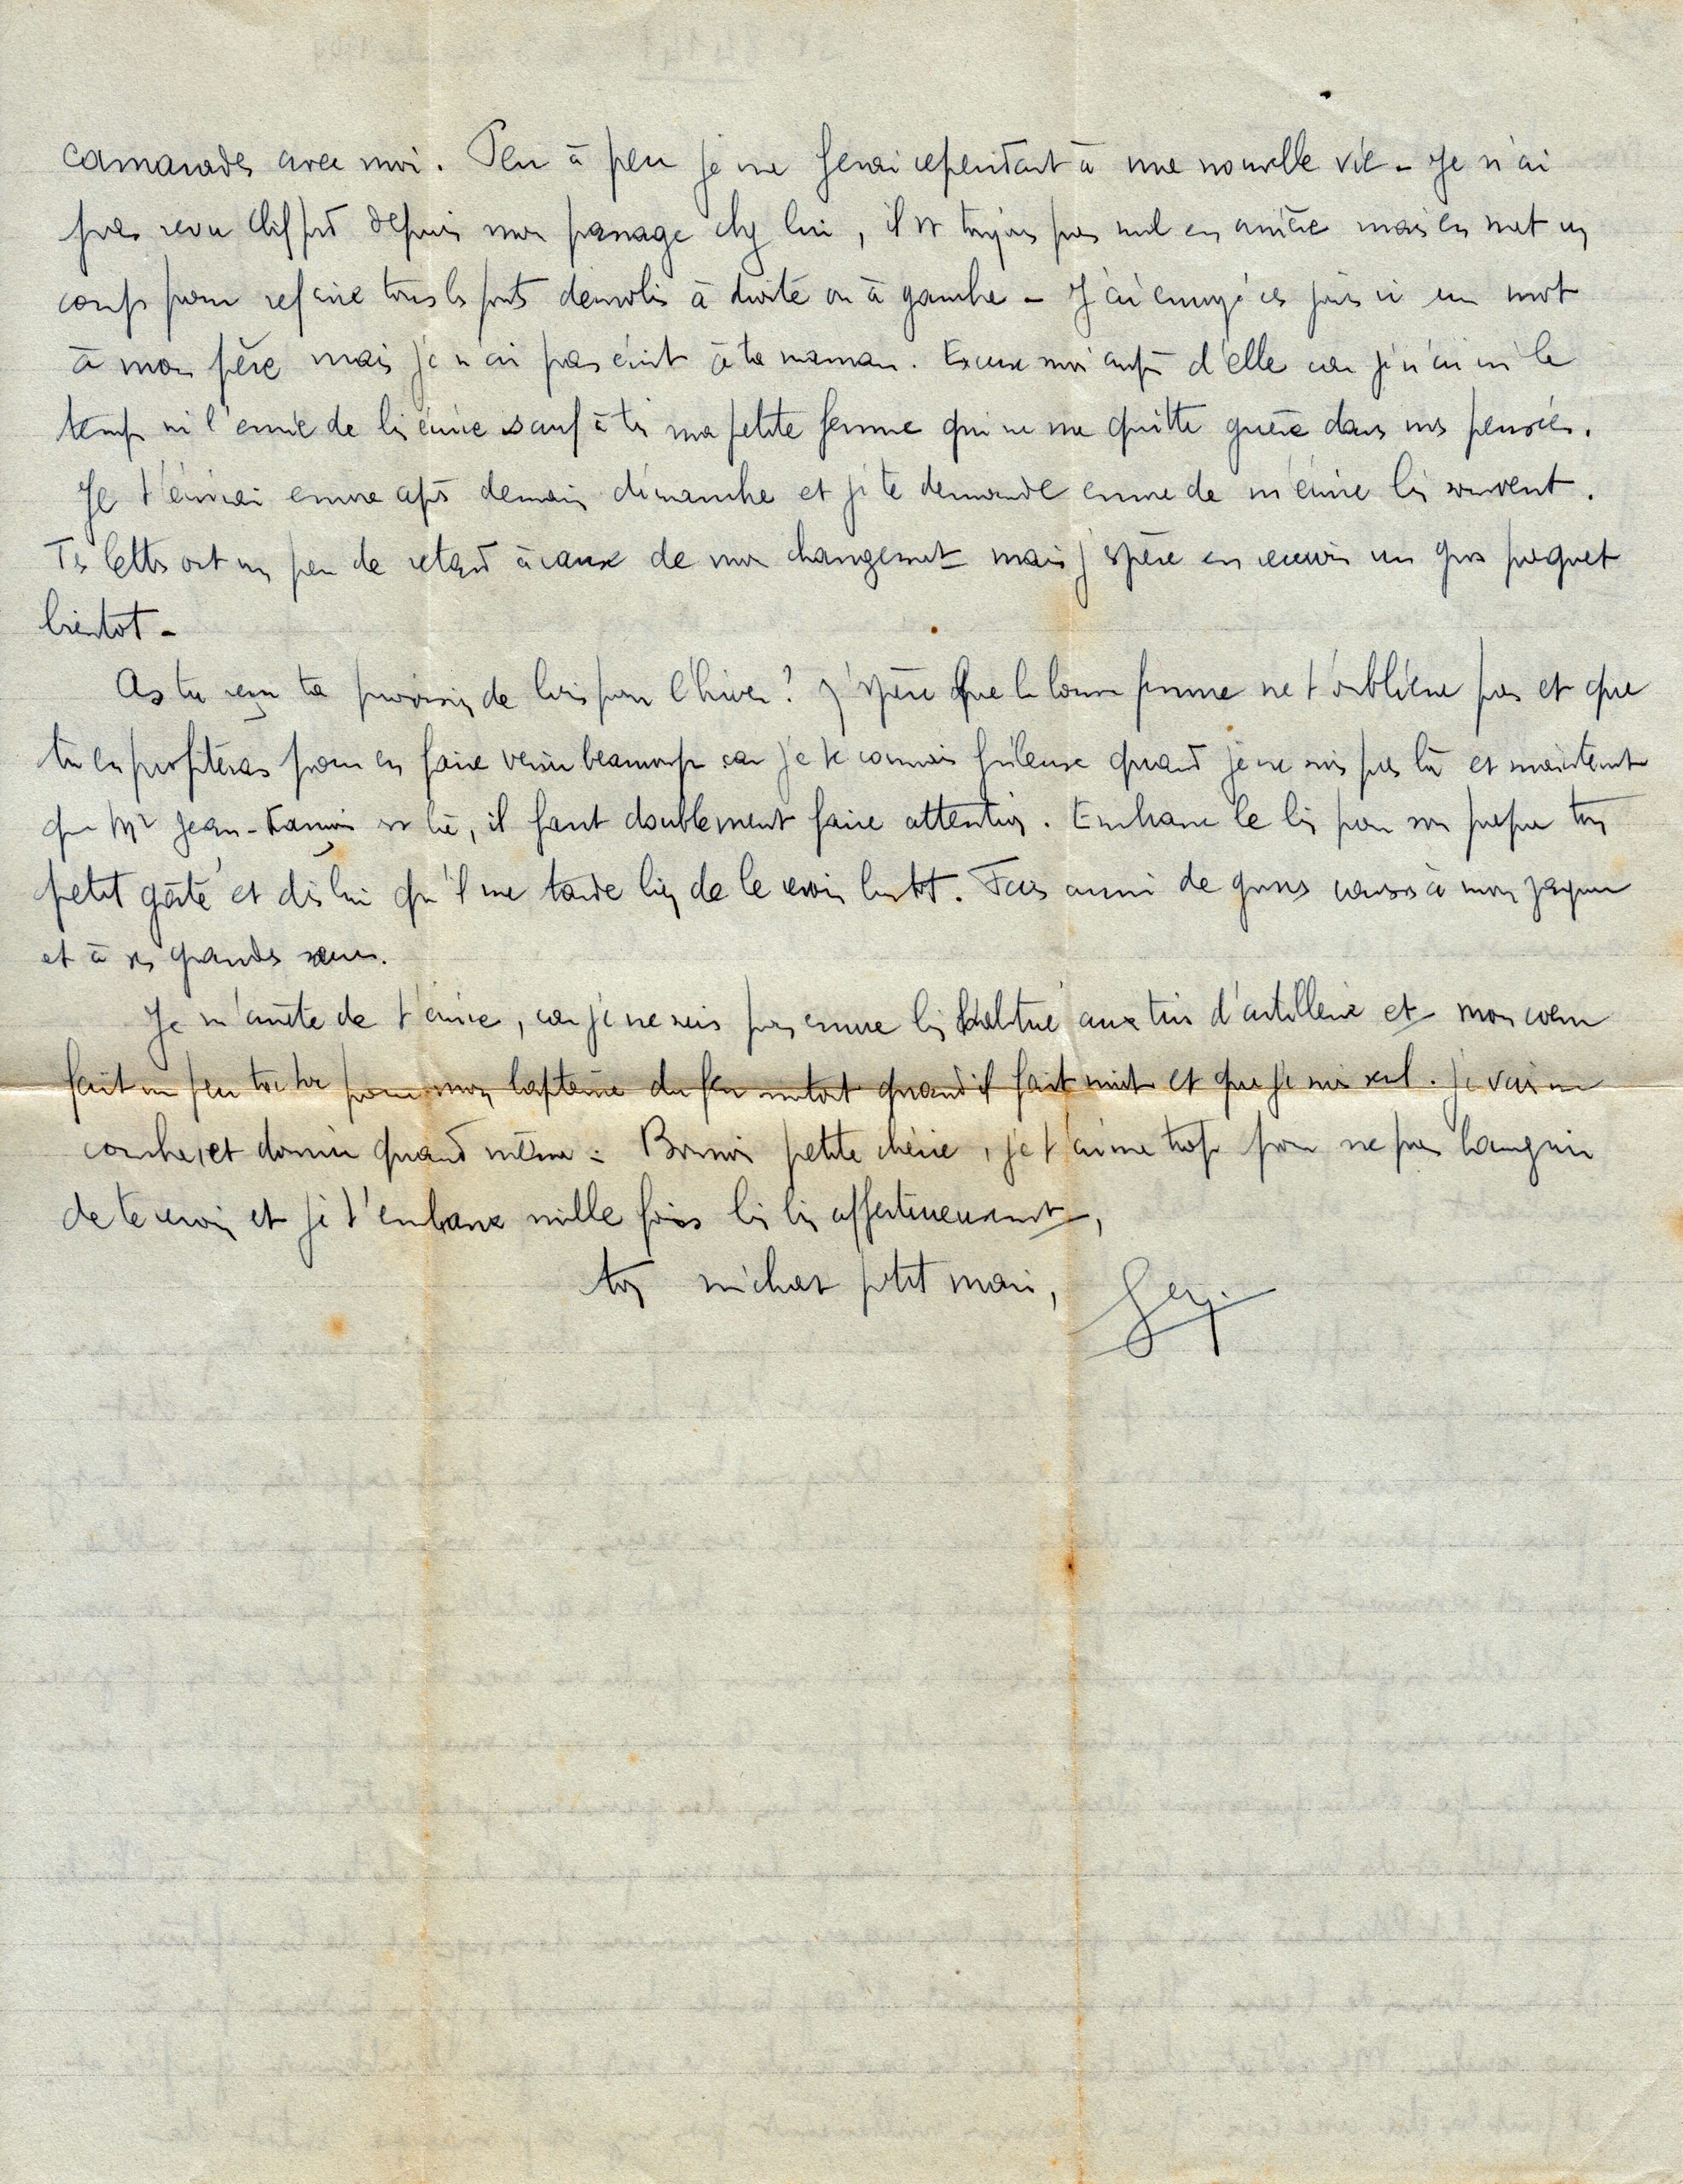 camarades avec moi. Peu à peu je me ferai cependant à ma nouvelle vie - Je n'ai
pas revu Cliffort depuis mon passage chez lui, il est toujours pas mal en arrière mais en met un
coup pour refaire tous les ponts démolis à droite ou à gauche - J'ai envoyé ces jours ci un mot
à mon père mais je n'ai pas écrit à ta maman. Excuse moi auprès d'elle car je n'ai ni le
temps ni l'envie de bien écrire sauf à toi ma petite femme qui ne me quitte guère dans mes pensées.
Je t'écrirai encore après demain dimanche et je te demande encore de m'écrire bien souvent.
Tes lettres ont un peu de retard à cause de mon changement mais j'espère en recevoir un gros paquet
bientot -
As tu reçu ta provision de bois pour l'hiver? J'espère que la bonne femme ne t'oubliera pas et que
tu en profiteras pour en faire venir beaucoup car je te connais frileuse quand je ne suis pas là et maintenant
que Mr Jean-François est là, il faut doublement faire attention. Embrasse le bien pour son papa ton
petit gâté et dis lui qu'il me tarde bien de le revoir bientot. Fais aussi de gros caresses à mon Jacques
et à ses grandes sœurs.
Je m'arrête de t'écrire, car je ne suis pas encore bien habitué aux tirs d'artillerie et mon cœur
fait un peu toc toc pour mon baptème du feu surtout quand il fait nuit et que je suis seul. Je vais me
coucher, et dormir quand même : Bonsoir petite chérie, je t'aime trop pour ne pas languir
de te revoir et je t'embrasse mille fois bien bien affectueusement,
ton méchant petit mari,